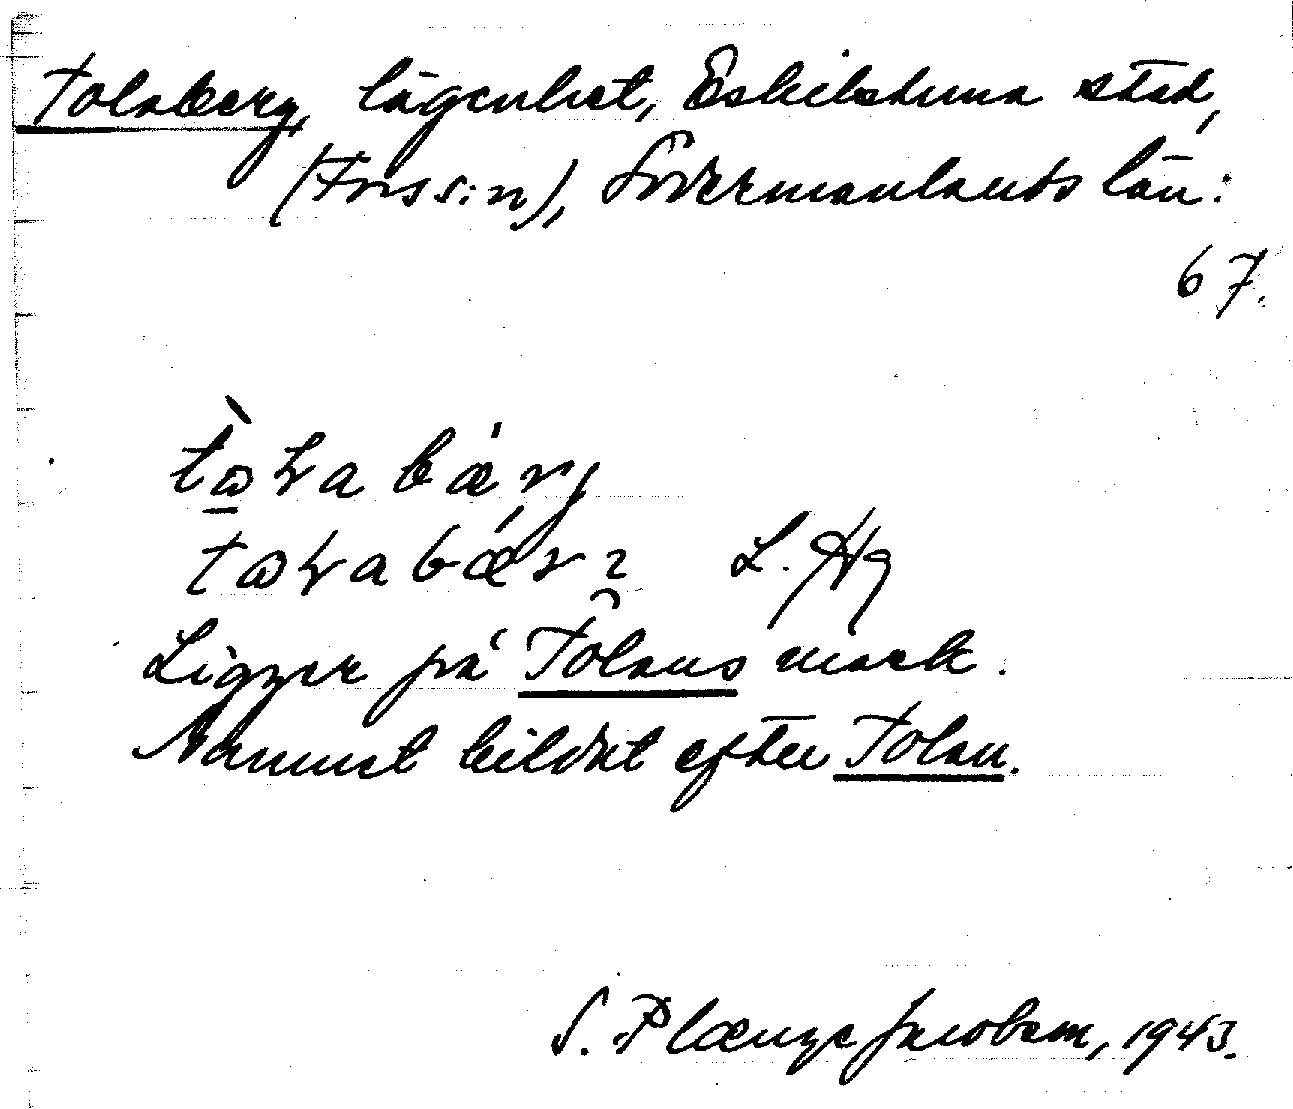 Tolaberg, lägenhet, Eskilstuna stad,
(Fors s:n), Södermanlands län:
67.
tɷ̀ɽabǽrj
tɷɽabǽrɩ L. Hg
Ligger på Tolans mark.
Namnet bildat efter Tolan.
S. Plænge Jacobson, 1943.